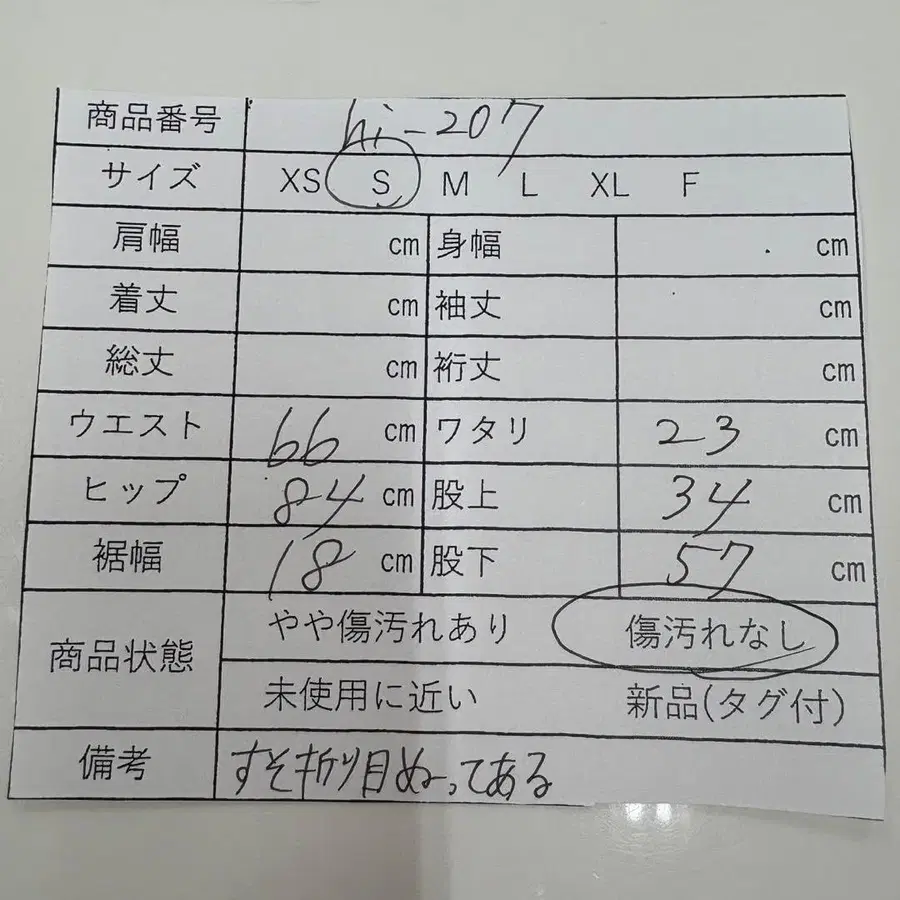 商品番号 hi-207
サイズ XS S M L XL F
肩幅 cm 身幅 cm
着丈 cm 袖丈 cm
総丈 cm 裄丈 cm
ウエスト 66 cm ワタリ 23 cm
ヒップ 84 cm 股上 34 cm
裾幅 18 cm 股下 57 cm
商品状態 やや傷汚れあり 傷汚れなし
未使用に近い 新品(タグ付)
備考 すそ折り目ぬってある